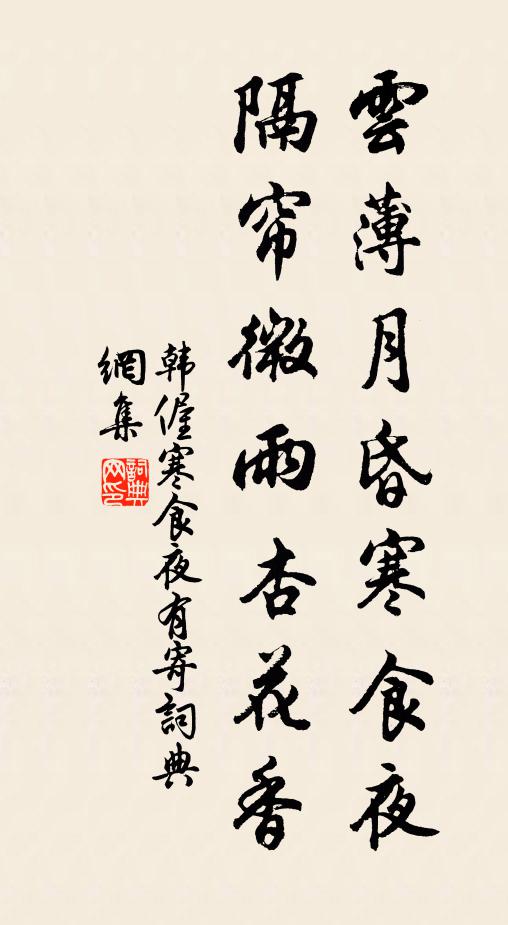 雲薄月昏寒食夜
隔帘微雨杏花香
韩偓寒食夜有寄詞典
網集
詞典网印